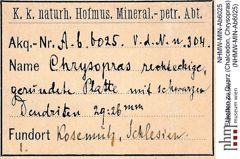 K. k. naturh. Hofmus. Mineral.-petr. Abt.
Akq.-Nr. A.b.6025. V.d.N.n.304.
Name Chrysopras rechteckige,
gerundete Platte mit schwarzen
Dendriten 29:26 mm
Fundort Kosemütz, Schlesien
1.
NHMW-MIN-Ab6025
(NHMW-MIN-Ab6025)
Etiketten zu Quarz (Chalcedon, Chrysopras)
museum wien